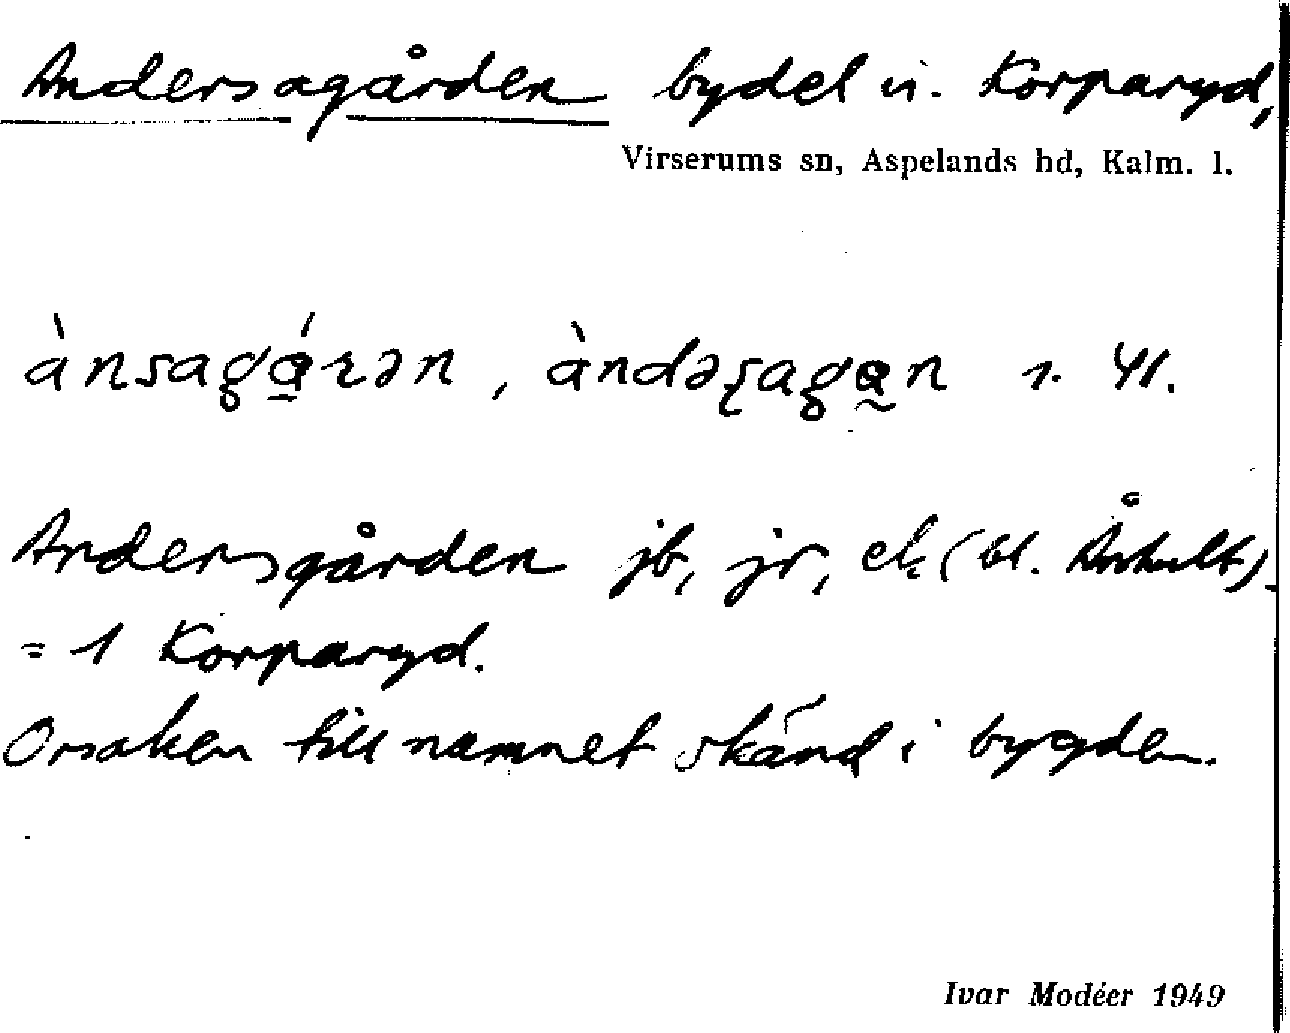 Andersagården bydel u. Korparyd,
Virserums sn, Aspelands hd, Kalm. l.
ànsagɑ́rən, àndəʂagɑn
Andersgården jb, jr, ek (bl. Århult).
= 1 Korparyd.
Orsaken till namnet okänd i bygden.
Ivar Modéer 1949